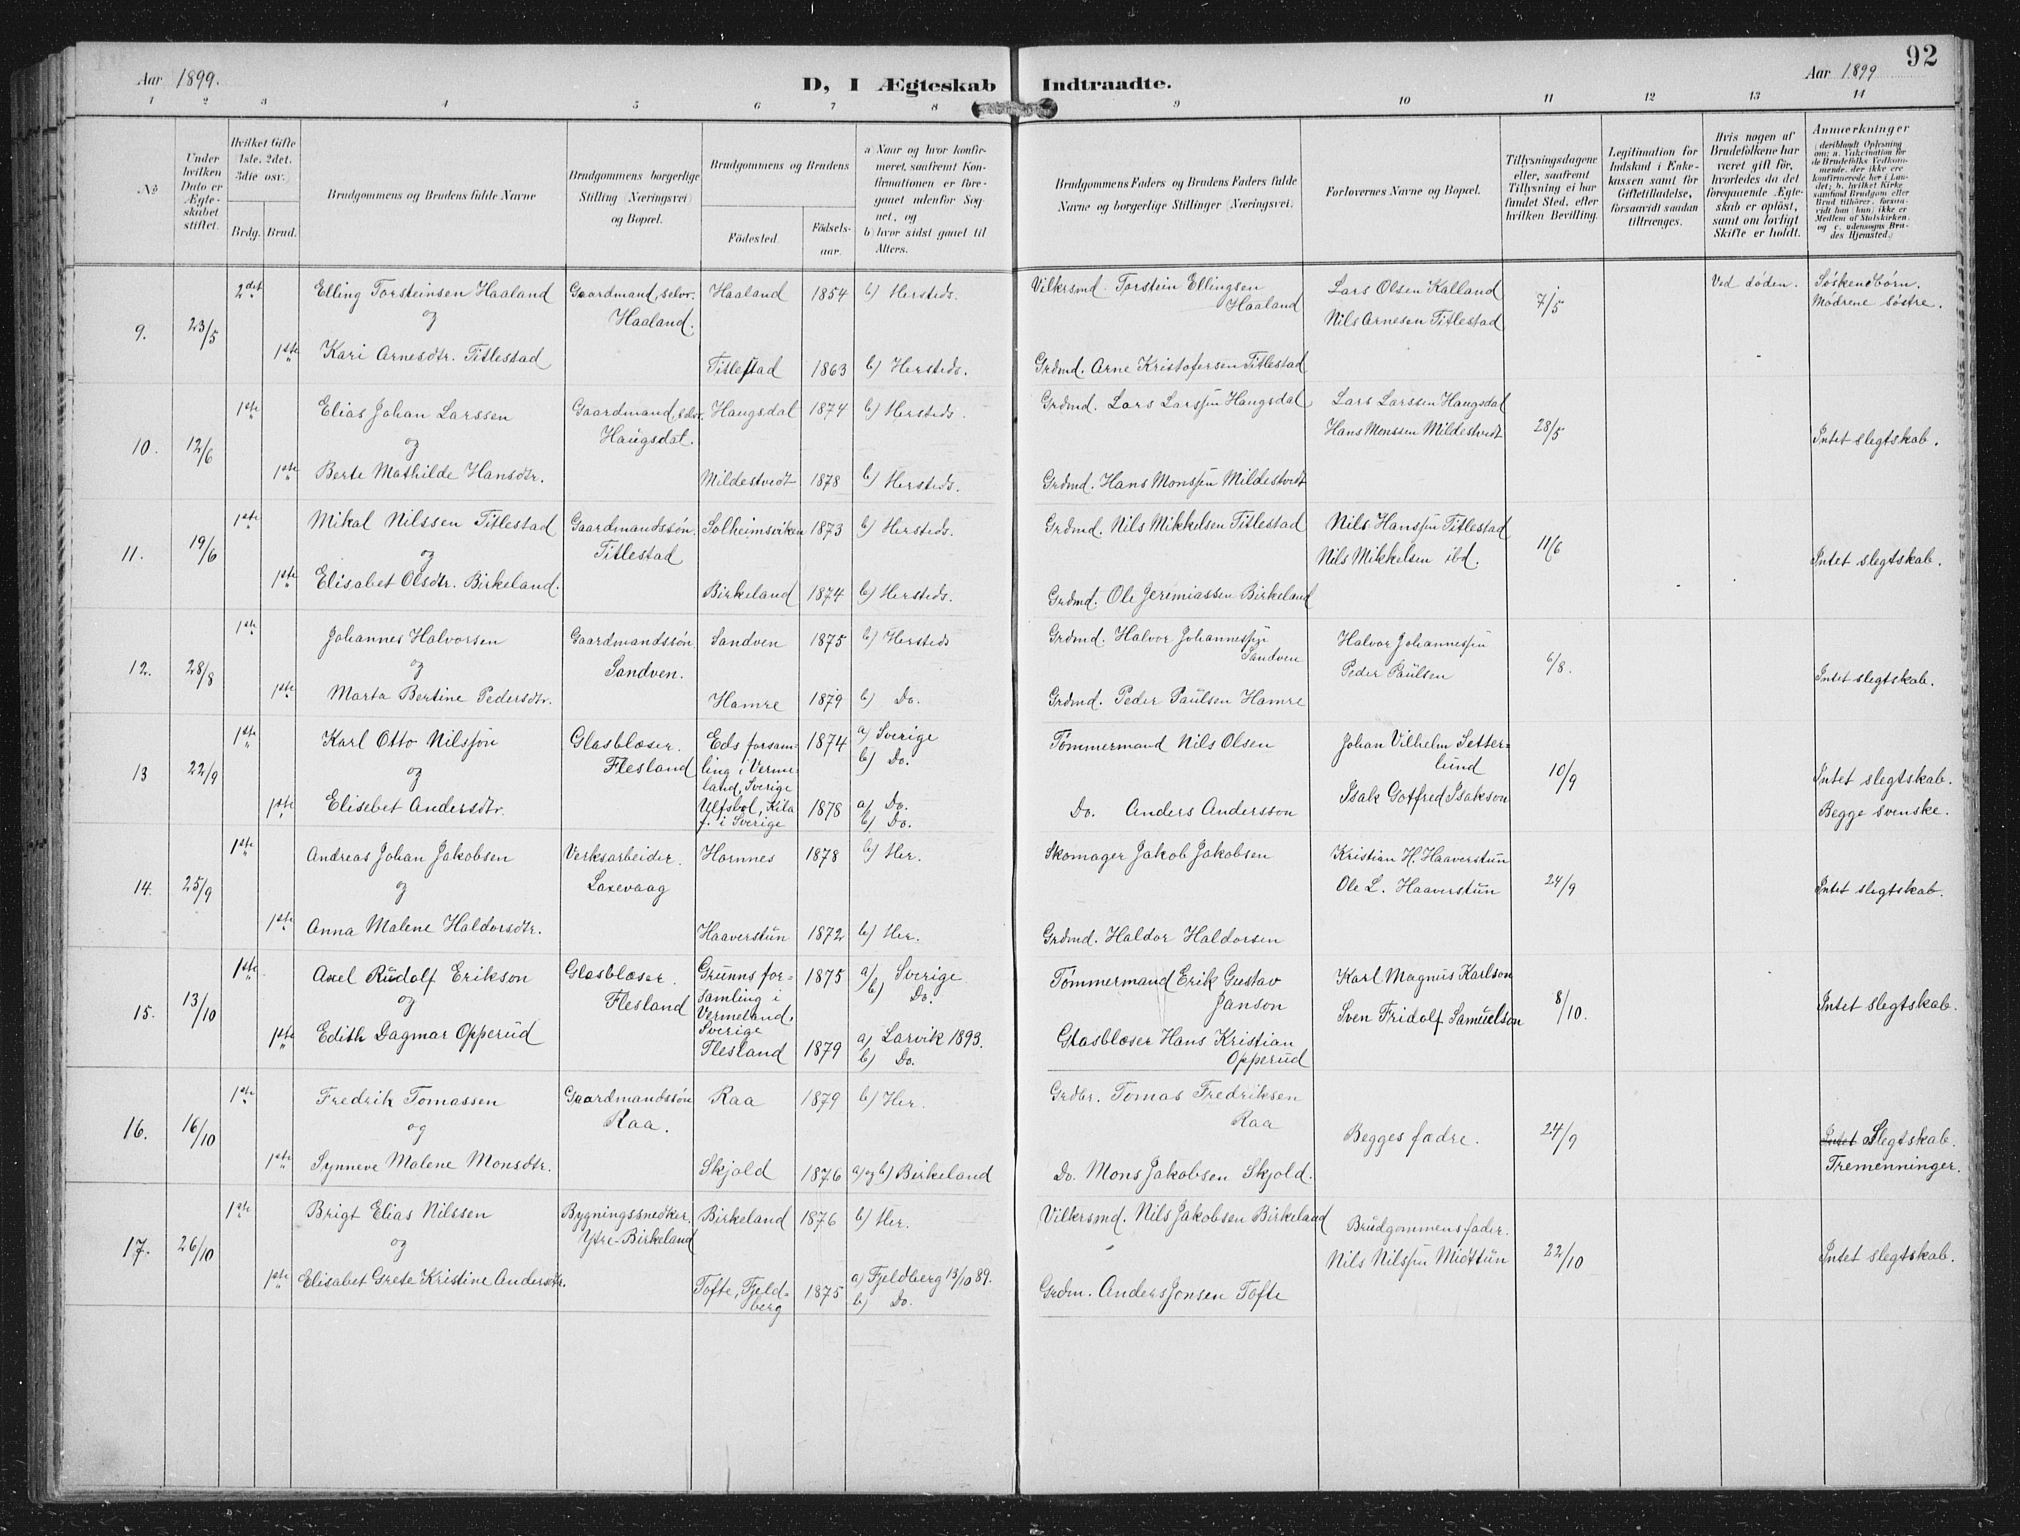 92
Aar 1899.
D, I Ægteskab Indtraadte.
Aar 1899
1 2 3 4 5 6 7 8 9 10 11 12 13 14
No
Under hvilken Dato er Ægteskabet stiftet.
Hvilket Gifte 1ste. 2det. 3die osv.
Brdg. Brud.
Brudgommens og Brudens fulde Navne
Brudgommens borgerlige Stilling (Næringsvei) og Bopæl.
Brudgommens og Brudens
Födested.
Födsels-aar.
a Naar og hvor konfirmeret, saafremt Konfirmationen er foregaaet udenfor Sognet, og
b) hvor sidst gaaet til Alters.
Brudgommens Faders og Brudens Faders fulde Navne og borgerlige Stillinger (Næringsvei).
Forlovernes Navne og Bopæl.
Tillysningsdagene eller, saafremt Tillysning ei har fundet Sted, efter hvilken Bevilling.
Legitimation for Indskud i Enkekassen samt for Giftetilladelse, forsaavidt saadan tiltrænges.
Hvis nogen af Brudefolkene har været gift før, hvorledes da det foregaaende Ægteskab er opløst, samt om lovligt Skifte er holdt.
Anmærkninger
(deriblandt Oplysning om: a. Vakcination for de Brudefolks Vedkommende, der ikke ere konfirmerede her i Landet; b. hvilket Kirkesamfund Brudgom eller Brud tilhører, forsaavidt han (hun) ikke er Medlem af Statskirken og c. udensogns Brudes Hjemsted.)
9. 23/5 2det Elling Torsteinsen Haaland Gaardmand, selv. Haaland 1854 b) Hersteds. Vilkersmd. Torstein Ellingsen Lars Olsen Kalland 7/5 Ved døden. Søskendbörn.
og Haaland. Haaland Nils Arnesen Titlestad Mødrene søstre.
1ste Kari Arnesdtr. Titlestad Titlestad 1863 b) Hersteds. Grdmd. Arne Kristofersen Titlestad
10. 12/6 1ste Elias Johan Larssen Gaardmand, selv. Haugsdal 1874 b) Hersteds. Grdmd. Lars Larssen Haugsdal Lars Larssen Haugsdal 28/5
og Haugsdal. Hans Monssen Mildestvedt Intet slegtskab.
1ste Berte Mathilde Hansdtr. Mildestvedt 1878 b) Hersteds. Grdmd. Hans Monssen Mildestvedt
11. 19/6 1ste Mikal Nilssen Titlestad Gaardmandssön Solheimsviken 1873 b) Hersteds. Grdmd. Nils Mikkelsen Titlestad Nils Hanssen Titlestad 11/6
og Titlestad Nils Mikkelsen ibd. Intet slegtskab.
1ste Elisabet Olsdtr. Birkeland. Birkeland 1874 b) Hersteds. Grdmd. Ole Jeremiassen Birkeland
12. 28/8 1ste Johannes Halvorsen Gaardmandssön Sandven 1875 b) Hersteds Grdmd. Halvor Johannessen Halvor Johannessen 6/8.
og Sandven. Sandven Peder Paulsen Intet slegtskab.
1ste Marta Bertine Pedersdtr. Hamre 1879 b) Do. Grdmd. Peder Paulsen Hamre
13 22/9 1ste Karl Otto Nilsson Glasblæser. Eds forsam- 1874 a) Sverige Tømmermand Nils Olsen Johan Vilhelm Setter- 10/9
og Flesland ling i Verme- b) Do. lund Intet slegtskab.
land, Sverige
1ste Elisebet Andersdtr. Ulfsbol, Kila 1878 a) Do. Do. Anders Andersson Isak Gotfred Isakson Begge svenske.
f. i Sverige b) Do.
14. 25/9 1ste Andreas Johan Jakobsen Verksarbeider. Hornnes 1878 b) Her. Skomager Jakob Jakobsen Kristian H. Haaverstun 24/9
og Laxevaag Ole L. Haaverstun Intet slegtskab.
1ste Anna Malene Haldorsdtr. Haaverstun 1872 b) Her. Grdmd. Haldor Haldorsen
15. 13/10 1ste Axel Rudolf Erikson Glasblæser. Grunns for- 1875 a) Sverige Tømmermand Erik Gustav Karl Magnus Karlson 8/10.
og Flesland samling i b) Do. Janson Sven Fridolf Samuelson Intet slegtskab.
Vermeland, Sverige
1ste Edith Dagmar Opperud Flesland 1879 a) Larvik 1893. Glasblæser Hans Kristian
b) Do. Opperud
16. 16/10 1ste Fredrik Tomassen Gaardmandssön Raa 1879 b) Her. Grdbr. Tomas Fredriksen Begges fædre. 24/9
og Raa. Raa Intet Slegtskab.
1ste Synneve Malene Monsdtr. Skjold 1876 a) og b) Birkeland Do. Mons Jakobsen Skjold. Tremenninger.
17. 26/10 1ste Brigt Elias Nilssen Bygningssnedker, Birkeland 1876 b) Her. Vilkersmd. Nils Jakobsen Birkeland Brudgommens fader. 22/10
og Ytre-Birkeland Nils Nilssen Midttun Intet slegtskab.
1ste Elisabet Grete Kristine Andersdtr. Tofte, Fjeld- 1875 a) Fjeldberg 13/10 89. Grdm. Anders Jonsen Tofte
berg b) Do.